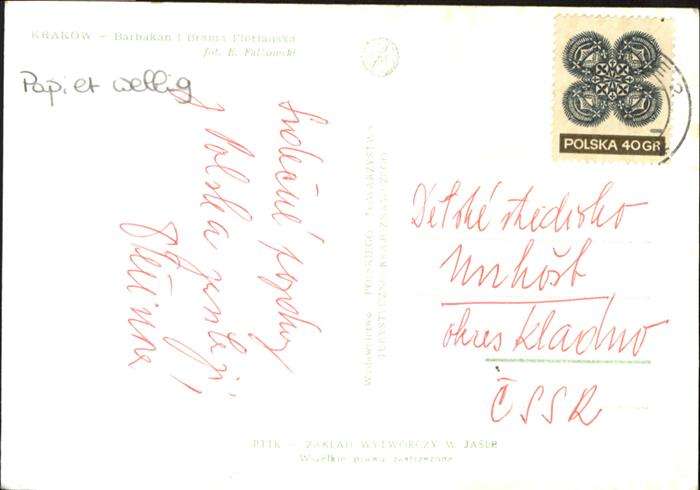 KRAKÓW — Barbakan i Brama Floriańska
fot. E. Falkowski
Papier wellig
Srdečné pozdravy
z Polska zasílají
POLSKA 40 GR
Dětské středisko
Unhošť
okres Kladno
ČSSR
Wydawnictwo POLSKIEGO TOWARZYSTWA
TURYSTYCZNO-KRAJOZNAWCZEGO
PTTK — ZAKŁAD WYTWÓRCZY W JAŚLE
Wszelkie prawa zastrzeżone